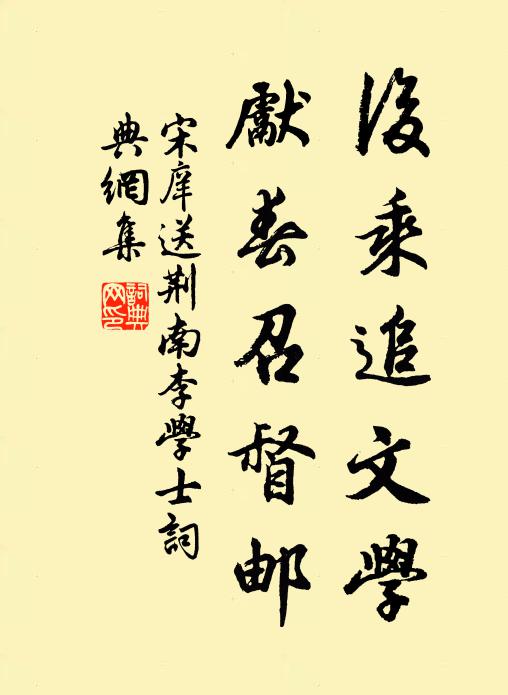 後乘追文學
獻春召督邮
宋庠送荆南李學士詞
典網集
詞典网印